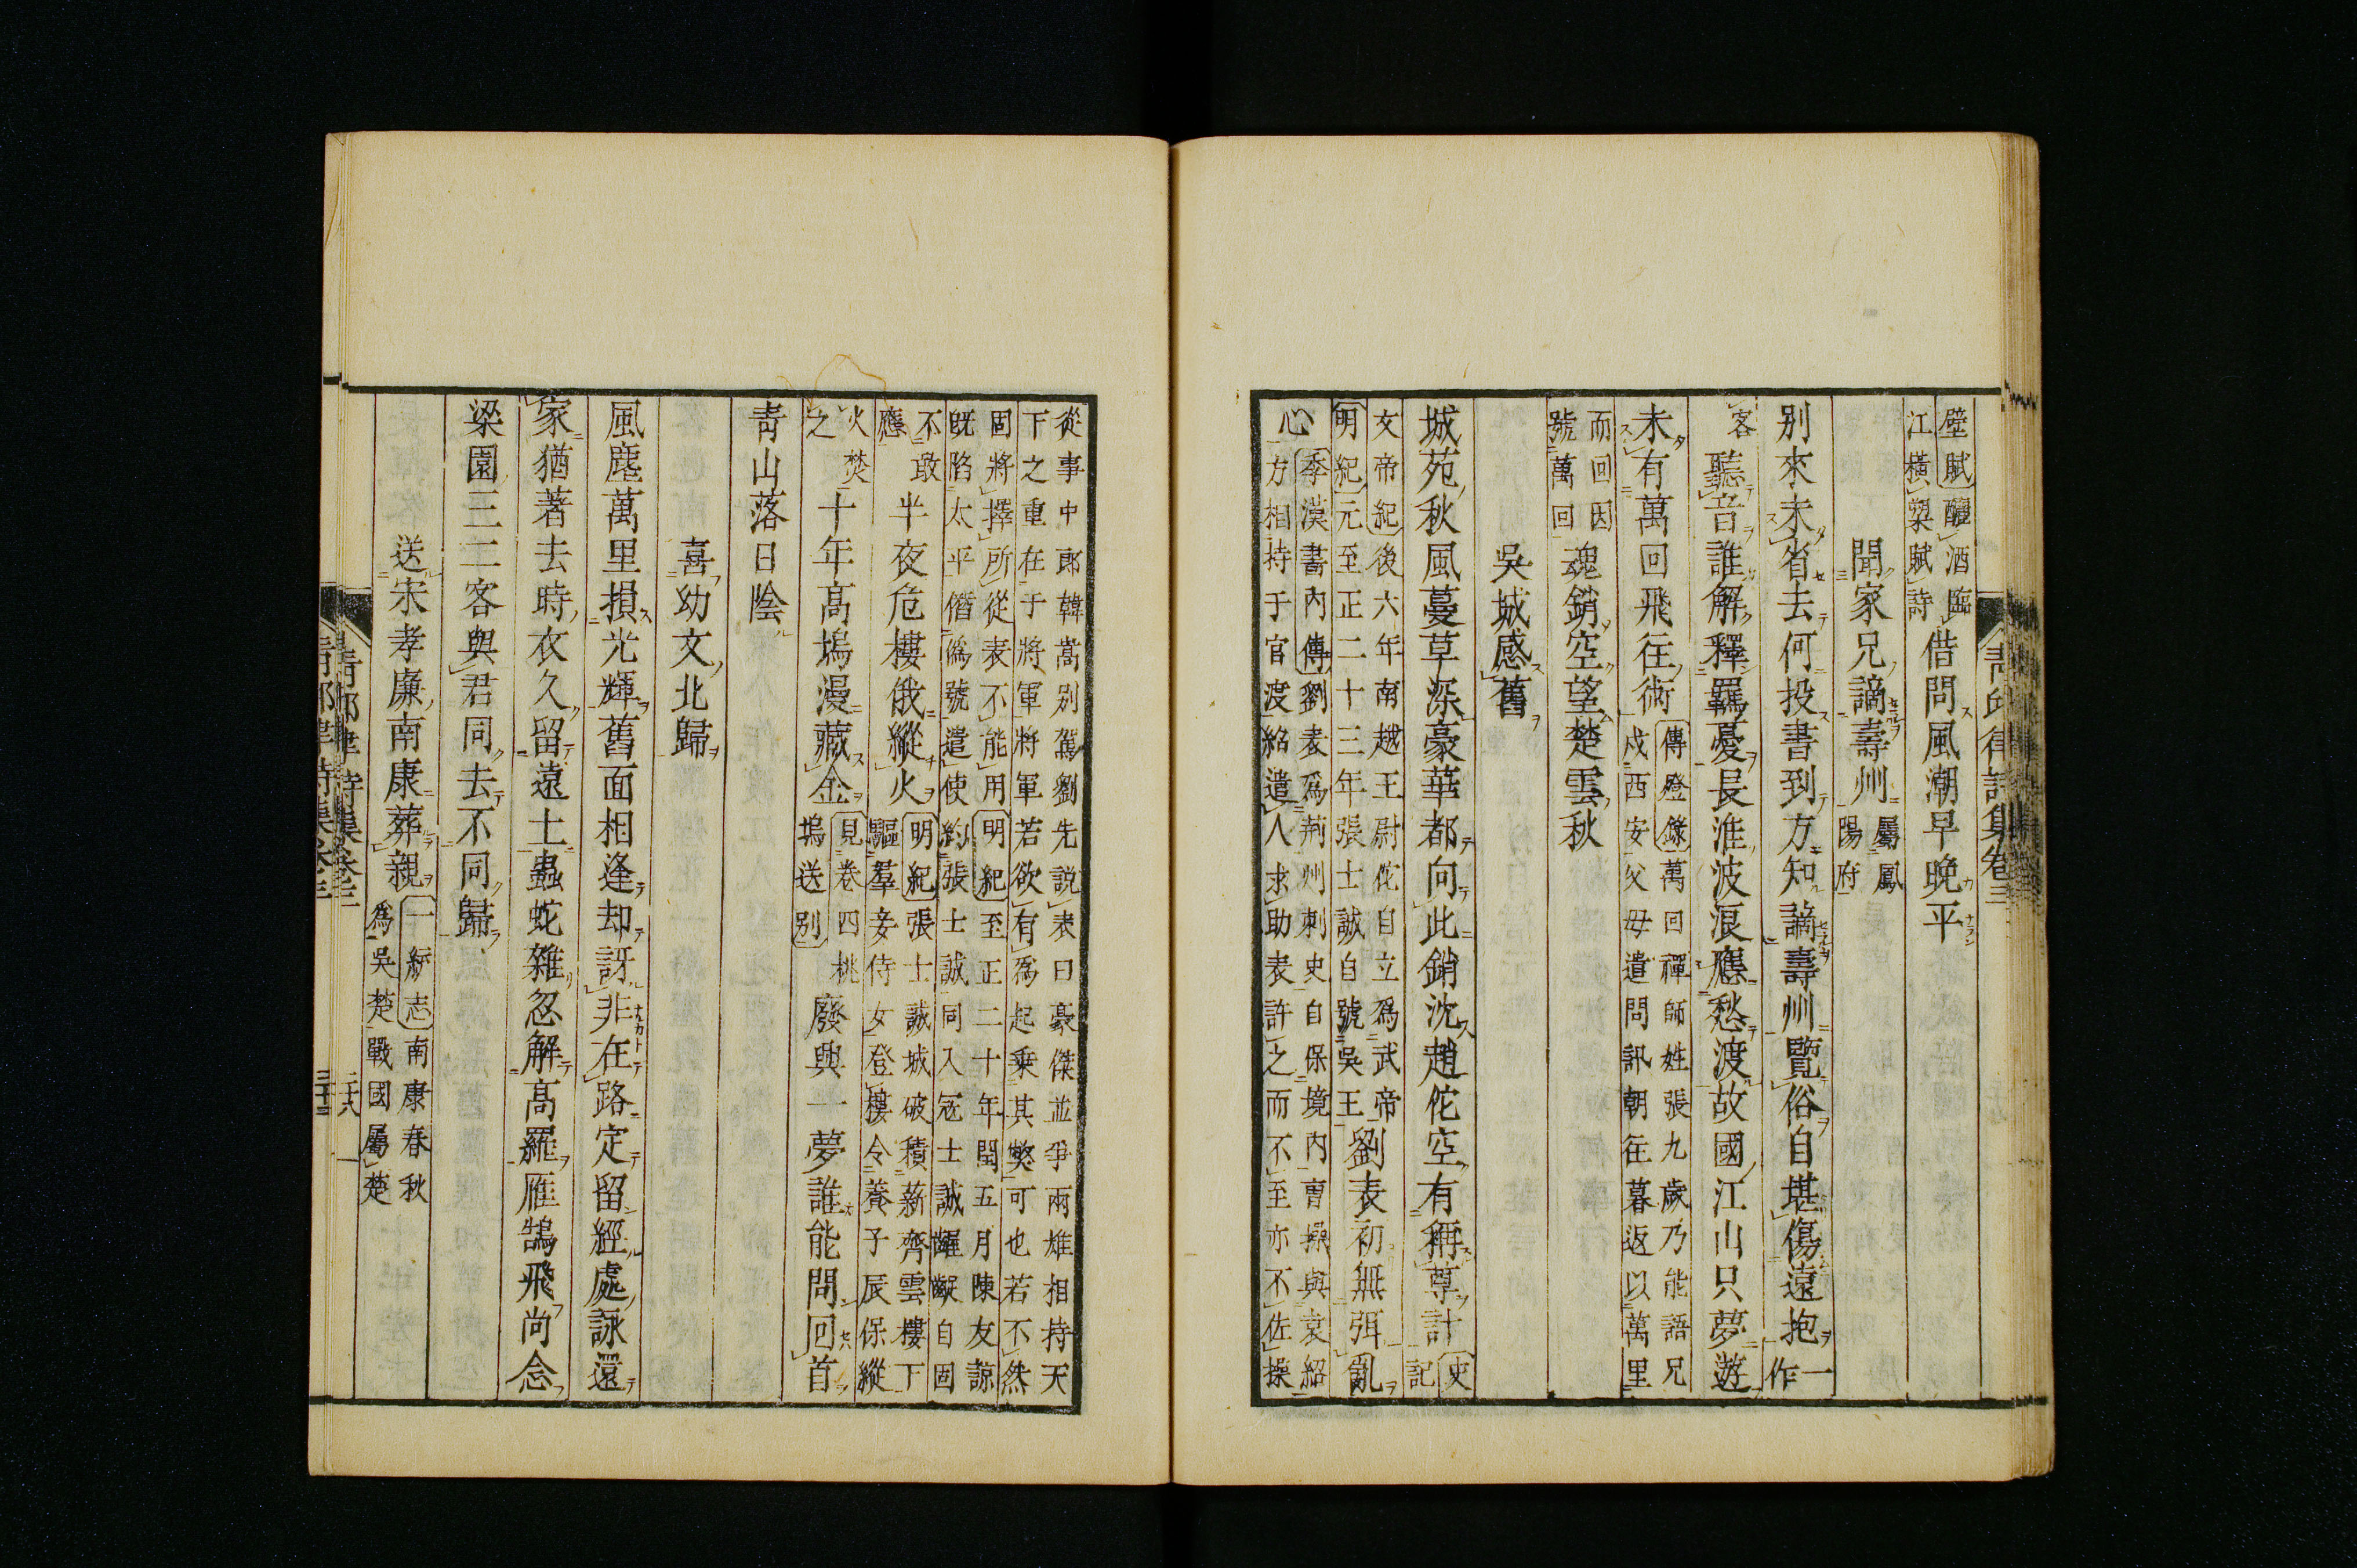 青邱律詩集卷三
壁賦釃酒臨
江橫槊賦詩
借問風潮早晚平
聞家兄謫壽州
屬鳳
陽府
別來未省去何投書到方知謫壽州覽俗自堪傷遠抱
一作
客
聽音誰解釋羈憂長淮波浪應愁渡故國江山只夢遊
未有萬回飛往術
傳燈錄萬回禪師姓張九歲乃能語兄
戍西安父母遣問訊朝往暮返以萬里
而回因
號萬回
魂銷空望楚雲秋
吳城感舊
城苑秋風蔓草深豪華都向此銷沈趙佗空有稱尊計
史
記
文帝紀後六年南越王尉佗自立爲武帝
明紀元至正二十三年張士誠自號吳王
劉表初無弭亂
心
季漢書內傳劉表爲荊州刺史自保境內曹操與袁紹
方相持于官渡紹遣人求助表許之而不至亦不佐操
從事中郎韓嵩別駕劉先説表曰豪傑並爭兩雄相持天
下之重在于將軍將軍若欲有爲起乘其弊可也若不然
固將擇所從表不能用
明紀至正二十年閏五月陳友諒
既陷太平僭僞號遣使約張士誠同入寇士誠齷齪自固
不敢
應
半夜危樓俄縱火
明紀張士誠城破積薪齊雲樓下
驅羣妾侍女登樓令養子辰保縱
火焚
之
十年高塢漫藏金
見卷四桃
塢送別
廢興一夢誰能問回首
靑山落日陰
喜幼文北歸
風塵萬里損光輝舊面相逢却訝非在路定留經處詠還
家猶著去時衣久留遠土蟲蛇雜忽解高羅雁鵠飛尚念
梁園三二客與君同去不同歸
送宋孝廉南康葬親
一統志南康春秋
爲吳楚戰國屬楚